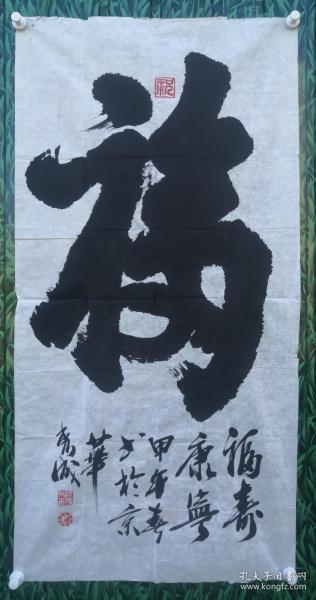 福
祝
福寿
康寧
甲午春
书於京
華
孔夫子旧书网
www.kongfz.com